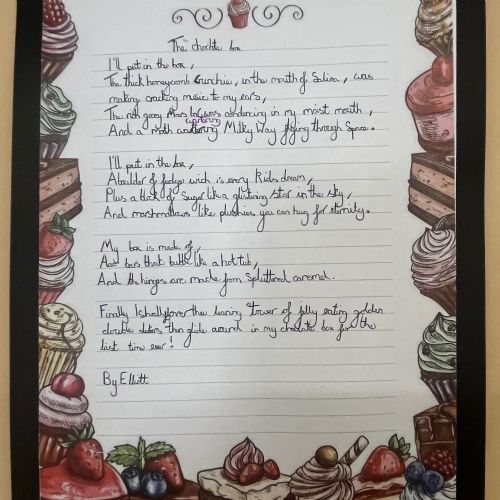 The choclate box
I'll put in the box,
The thick honeycomb Crunchie, in the mouth of Salina, was
making cracking music to my ears,
The rich gooy Mars bar was dancing in my moist mouth,
And a moth watering Milky Way flying through Space.
I'll put in the box,
A boulder of fudge wich is every Kids dream,
Plus a block of Sugar like a glistening star in the sky,
And marshmallows like plushies you can hug for eternity.
My box is made of,
Aero bars that bubble like a hot tub,
And the hinges are made from Spluttered caramel.
Finally I shall the leaning tower of jelly eating golden
then glide around in my choclate box for the
last time ever!
By Elliott